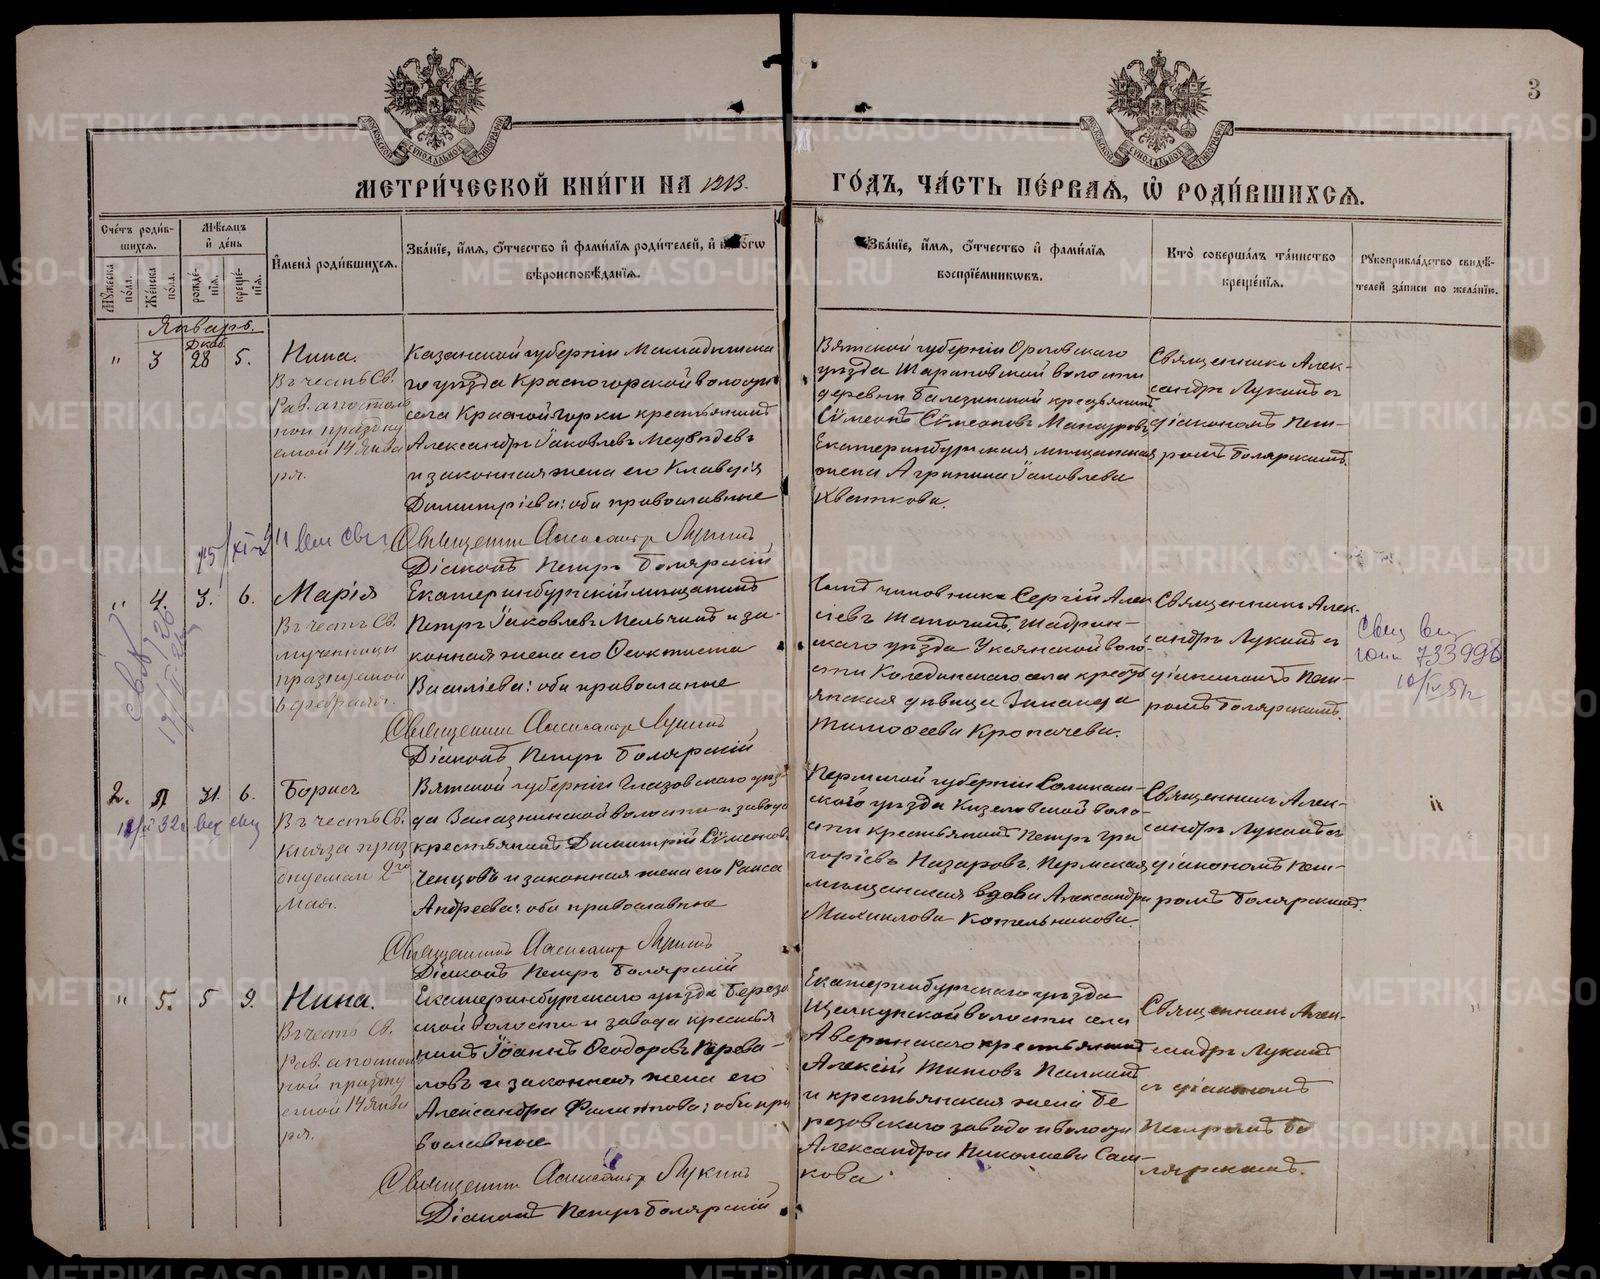 3
МОСКОВСКОЙ СѴНОДАЛЬНОЙ ТИПОГРАФІИ
МОСКОВСКОЙ СѴНОДАЛЬНОЙ ТИПОГРАФІИ
МЕТРИ́ЧЕСКОЙ КНИ́ГИ НА 1913.
ГО́ДЪ, ЧА́СТЬ ПЕ́РВАЯ, Ѡ҆ РОДИ́ВШИХСЯ.
Сче́тъ роди́в-
шихся.
Мѣ́сяцъ
и҆ де́нь
И҆мена̀ роди́вшихся.
Зва́нїе, и҆́мя, ѻ҆́тчество и҆ фами́лїя роди́телей, и҆
вѣроисповѣ́данїя.
Зва́нїе, и҆́мя, ѻ҆́тчество и҆ фами́лїя
воспрїе́мниковъ.
Кто̀ соверша́лъ та́инство
креще́нїя.
Рꙋкоприкла́дство свидѣ́-
телей за́писи по жела́нїю.
Мꙋ́жеска
по́ла.
Же́нска
по́ла.
рожде́-
нїя.
креще́-
нїя.
Январь.
Декаб.
" 3 28 5.
Нина.
Въ честь Св.
Рав. апостоль
ной праздну
емой 14 Янва
ря.
Казанской губерніи Мамадышска
го уѣзда Красногорской волости
села Красной Горки крестьянинъ
Александръ Іаковлевъ Медвѣдевъ
и законная жена его Клавдія
Димитріева: оба православные
Священникъ Александръ Лукинъ
Діаконъ Петръ Болярскій
Вятской губерніи Орловскаго
уѣзда Шарановской волости
деревни Балезинской крестьянинъ
Сѵмеонъ Сѵмеоновъ Мануровъ,
Екатеринбургская мѣщанская
жена Агрипина Іаковлева
Квашкова.
Священникъ Алек-
сандръ Лукинъ съ
діакономъ Пет-
ромъ Болярскимъ.
" 4. 3. 6.
Марія
Въ честь Св.
мученицы
празнуемой
6 февраля.
Екатеринбургскій мѣщанинъ
Петръ Іаковлевъ Мельчинъ и за-
конная жена его Ѳеоктиста
Василіева: оба православные
Священникъ Александръ Лукинъ
Діаконъ Петръ Болярскій
Сынъ чиновника Сергій Алек
сіевъ Шапочинъ, Шадрин-
скаго уѣзда Уксянской воло-
сти Колединскаго села кресть
янская дѣвица Зинаида
Тимоѳеева Кропачева.
Священникъ Алек-
сандръ Лукинъ съ
діакономъ Пет-
ромъ Болярскимъ.
733996
2. " 31. 6.
Борисъ
Въ честь Св.
князя праз
днуемаго 2го
Мая.
Вятской губерніи Глазовскаго уѣз-
да Залазнинской волости и завода
крестьянинъ Димитрій Сѵмеоновъ
Ченцовъ и законная жена его Раиса
Андреева: оба православные
Священникъ Александръ Лукинъ
Діаконъ Петръ Болярскій
Пермской губерніи Соликам-
скаго уѣзда Кизеловской воло-
сти крестьянинъ Петръ Гри
горіевъ Назаровъ, Пермская
мѣщанская вдова Александра
Михаилова Котельникова.
Священникъ Алек-
сандръ Лукинъ съ
діакономъ Пет-
ромъ Болярскимъ.
" 5. 5 9.
Нина.
Въ честь Св.
Рав. апостоль
ной праздну
емой 14 Янва
ря.
Екатеринбургскаго уѣзда Березов
ской волости и завода крестья
нинъ Іоаннъ Ѳеодоровъ Перева-
ловъ и законная жена его
Александра Филиппова; оба пра
вославные
Священникъ Александръ Лукинъ
Діаконъ Петръ Болярскій
Екатеринбургскаго уѣзда
Щелкунской волости села
Аверинскаго крестьянинъ
Алексій Титовъ Палкинъ
и крестьянская жена Бе
резовскаго завода и волости
Александра Николаева Саш-
кова
Священникъ Алек-
сандръ Лукинъ
съ діакономъ
Петромъ Бо
лярскимъ.
METRIKI.GASO-URAL.RU